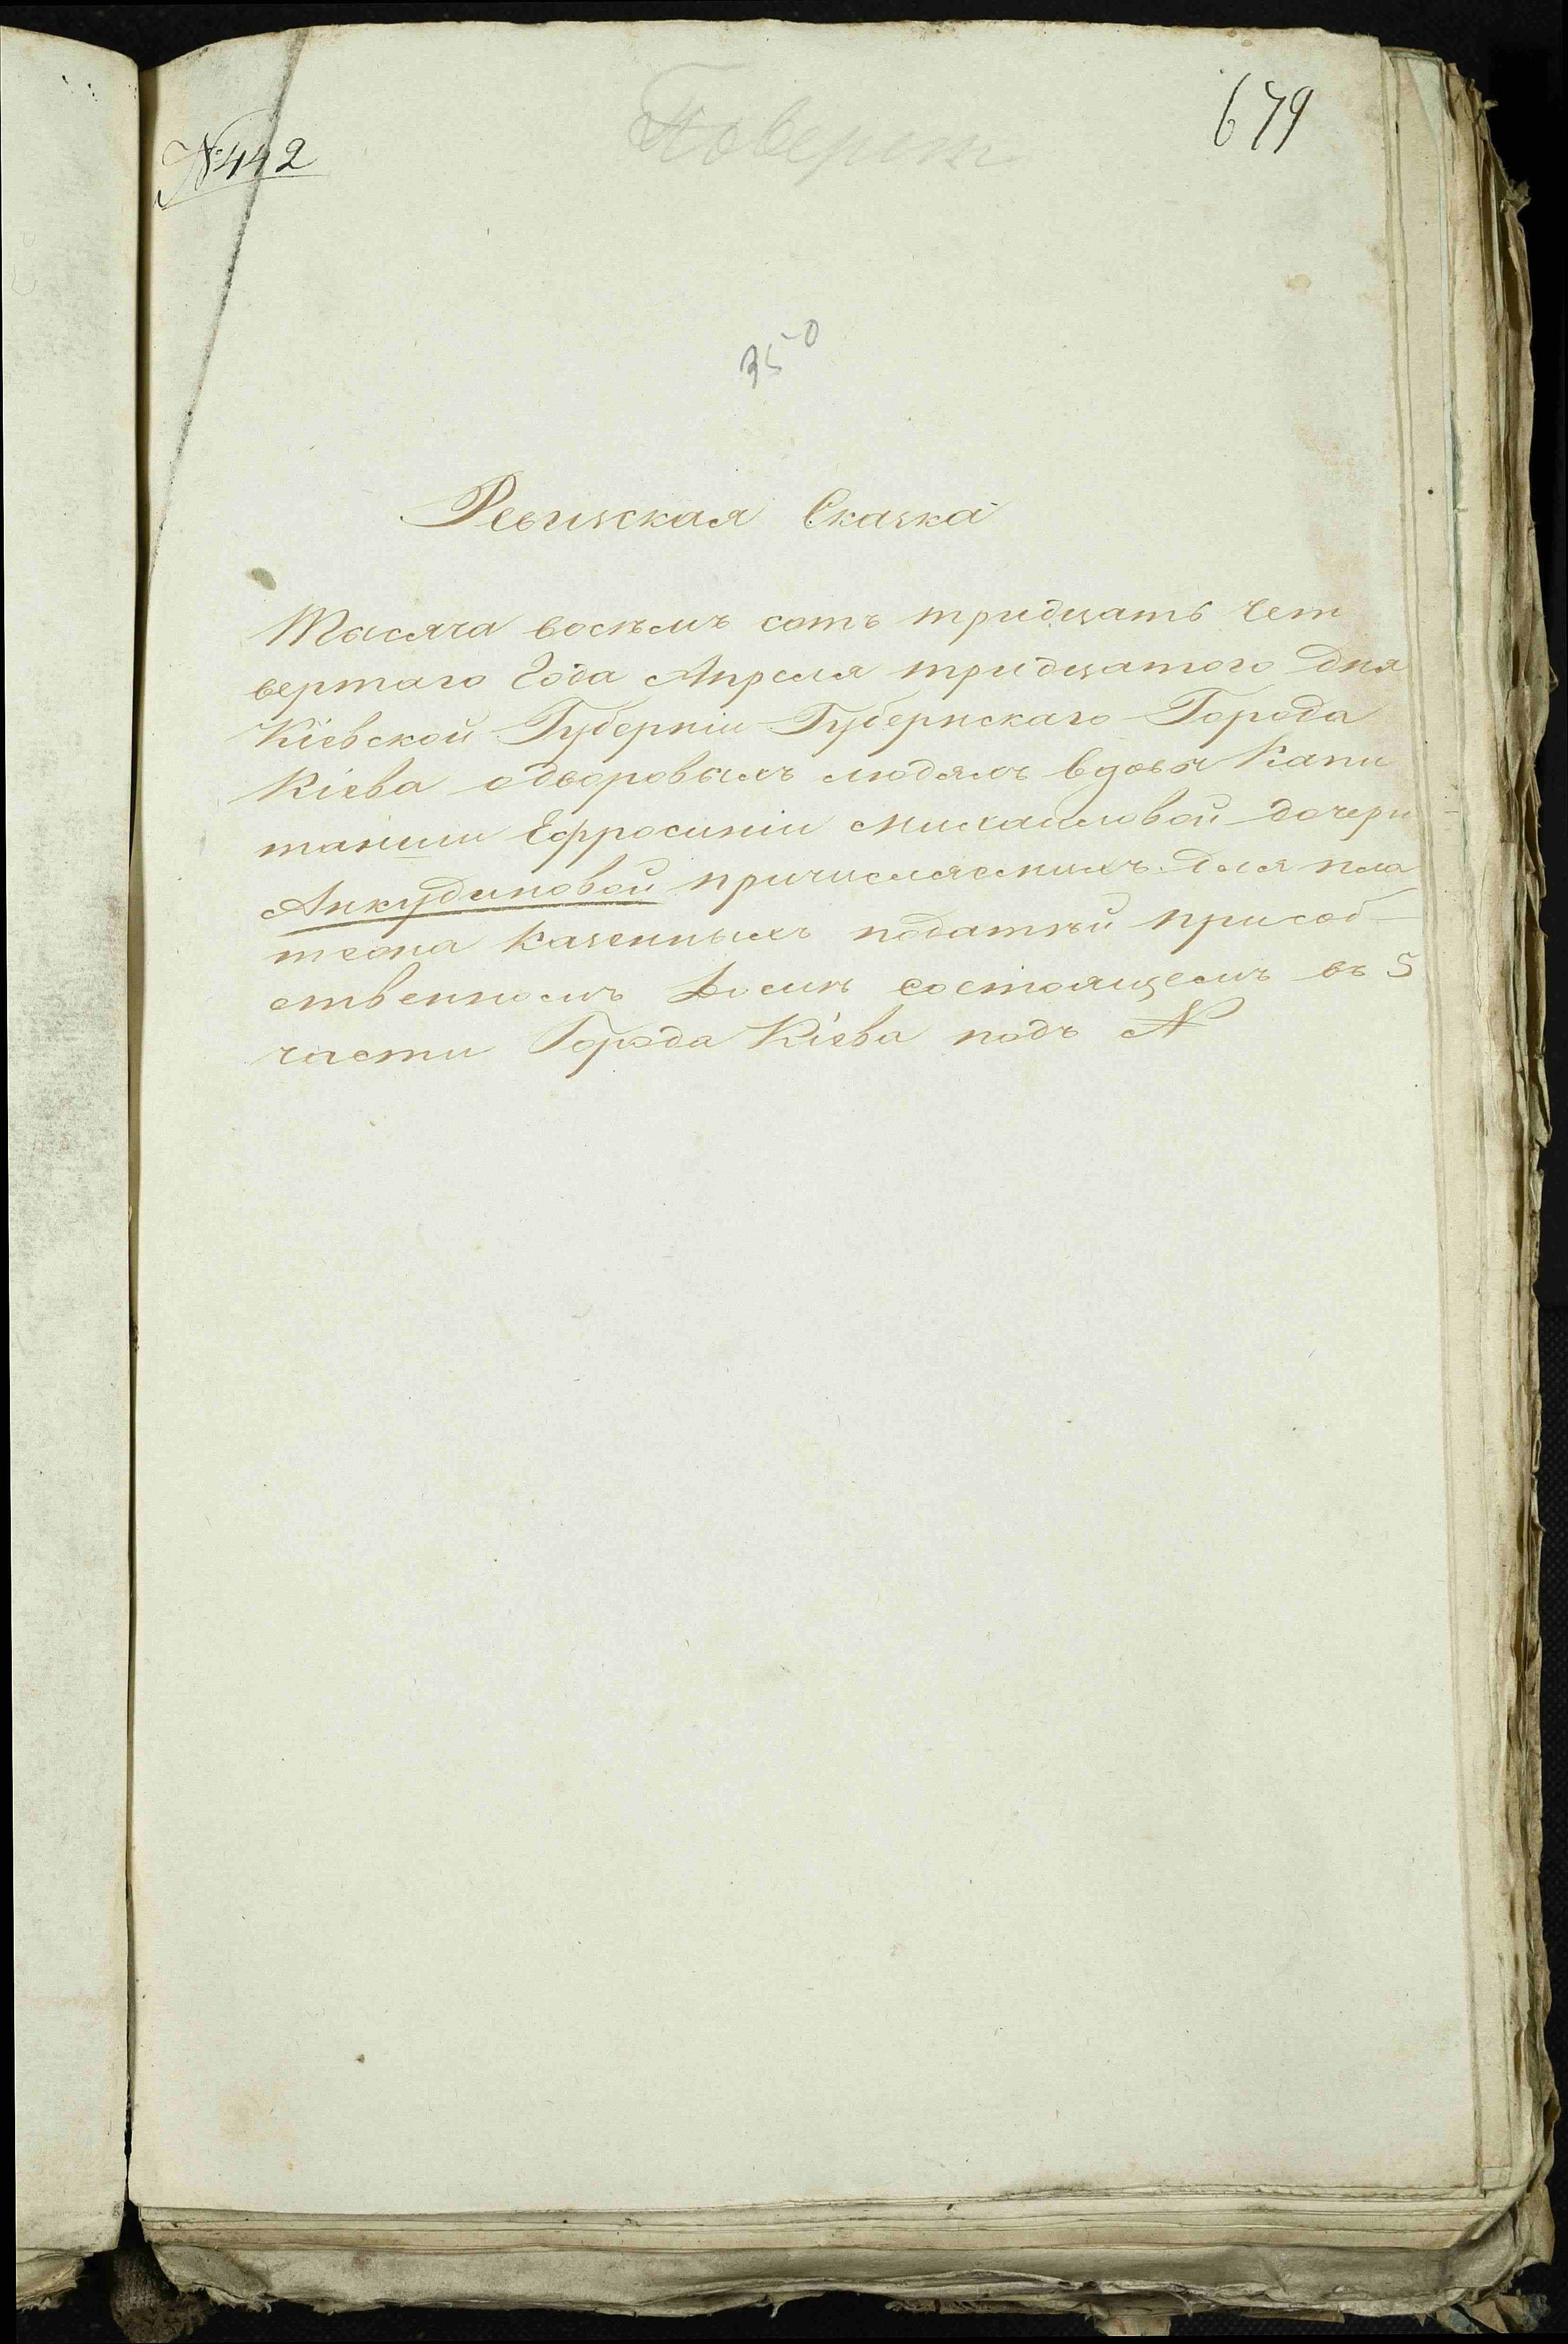 № 442
679
350
Ревизская Сказка
Тысяча восѣмъ сотъ тридцать чет
вертаго Года Апреля тридцатого Дня
Кіевской Губерніи Губернскаго Города
Кіева одворовыхъ людяхъ вдовы Капи
танши Ефросиніи Михаиловой дочери
Анкудиновой причисляемыхъ для пла
тежа казенныхъ податѣй присоб-
ственномъ Домѣ состоящемъ въ 5
части Города Кіева подъ №